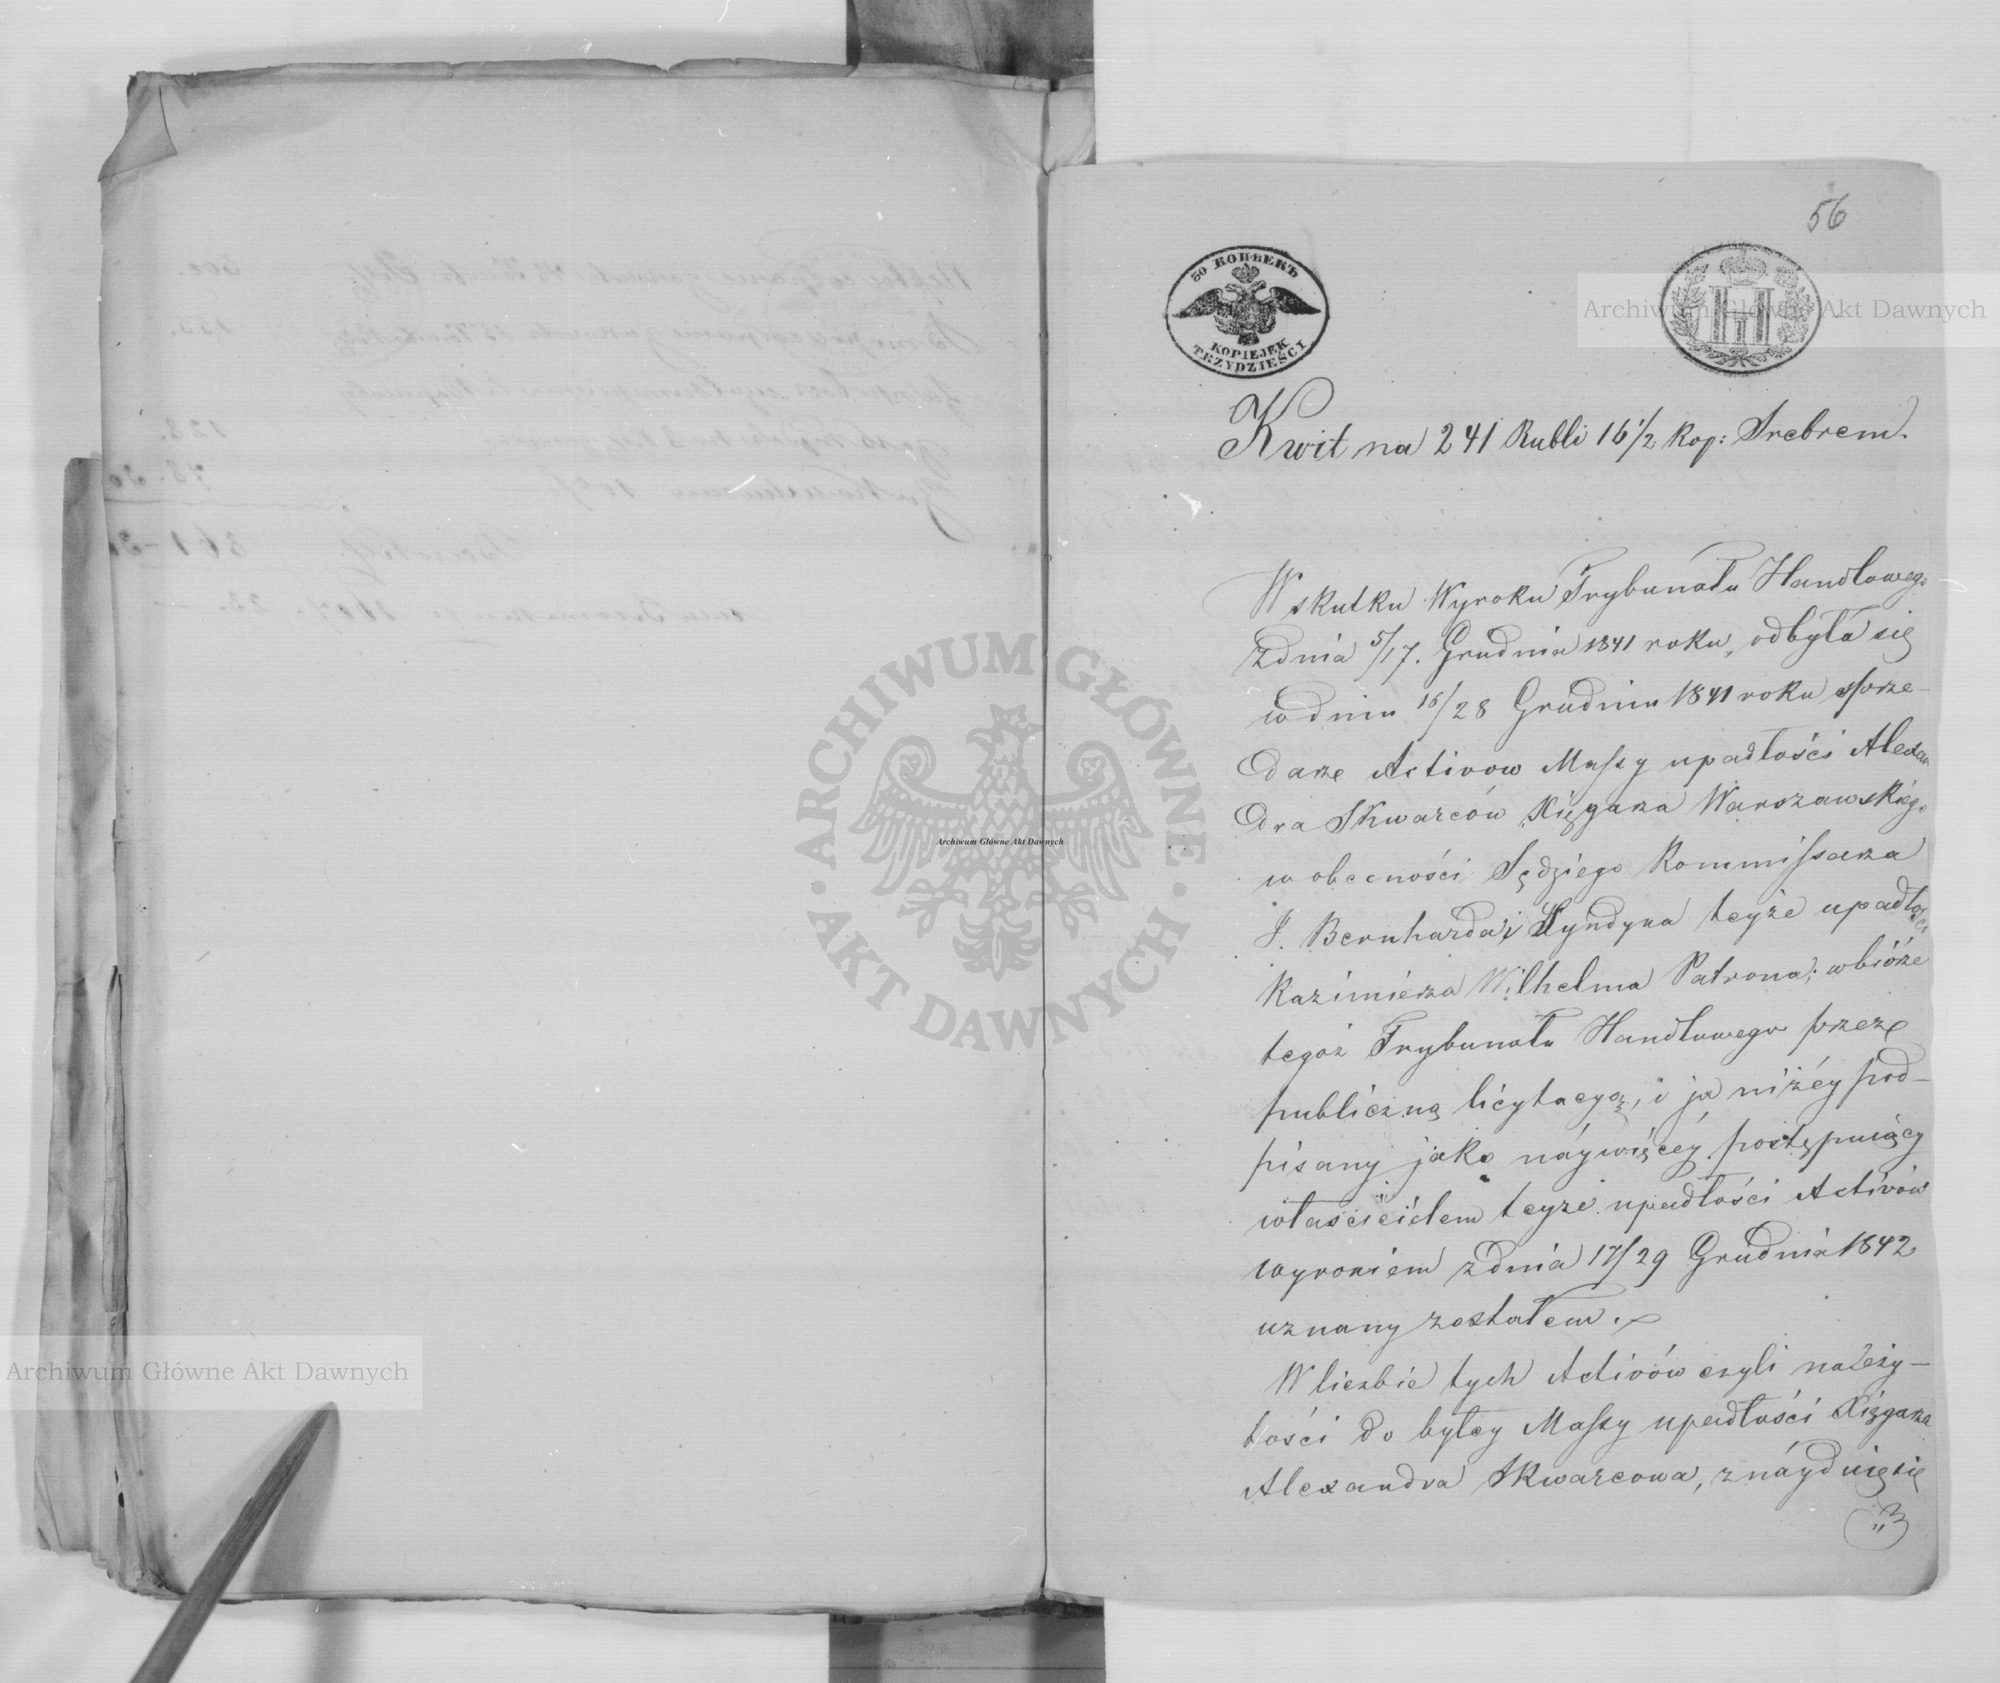 56
30 КОПѢЕКЪ
KOPIEJEK
TRZYDZIEŚCI
Archiwum Główne Akt Dawnych
Kwit na 241 Rubli 16 1/2 Kop: Srebrem.
W skutku Wyroku Trybunału Handlowego
z dnia 5/17. Grudnia 1841 roku, odbyła się
w dniu 16/28 Grudnia 1841 roku sprze-
daż Activow Massy upadłości Alexan
dra Skwarców Xięgarza Warszawskiego
w obecności Sędziego Kommissarza
J. Bernharda i Syndyka teyże upadłości
Kazimierza Wilhelma Patrona; w biórze
tegoż Trybunału Handlowego przez
publiczną licytacyą, i ja niżéy pod-
pisany jako náywięcéy postępuiący
właścicielem teyże upadłości Activów
wyrokiem z dnia 17/29 Grudnia 1842
uznany zostałem.
W liczbie tych Activów czyli należy-
tości do byłey Massy upadłości Xięgarza
Alexandra Skwarcowa, znáyduię się
ARCHIWUM GŁÓWNE
AKT DAWNYCH
Archiwum Główne Akt Dawnych
Archiwum Główne Akt Dawnych